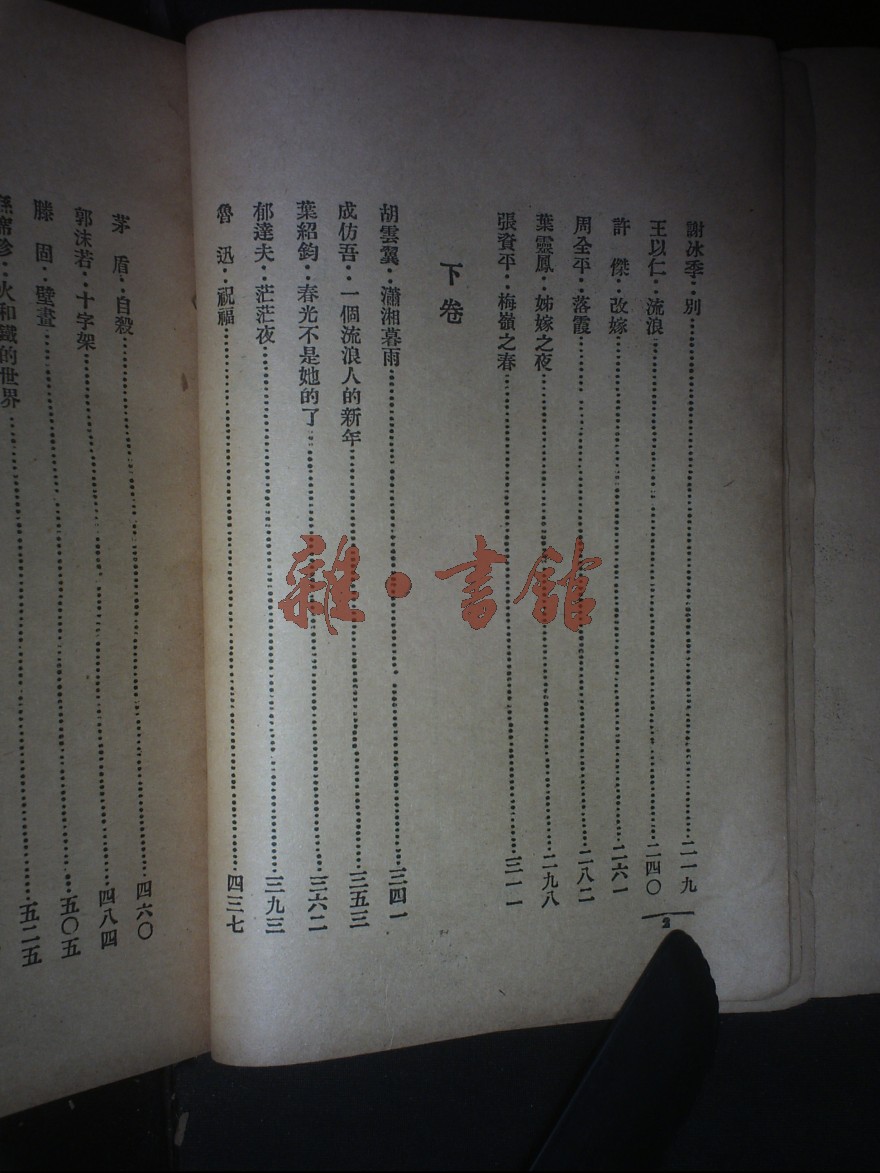 謝冰季：別……二一九
王以仁：流浪……二四〇
許　傑：改嫁……二六一
周全平：落霞……二八二
葉靈鳳：姊嫁之夜……二九八
張資平：梅嶺之春……三一一
下卷
胡雲翼：瀟湘暮雨……三四一
成仿吾：一個流浪人的新年……三五三
葉紹鈞：春光不是她的了……三六二
郁達夫：茫茫夜……三九三
魯　迅：祝福……四三七
2
茅　盾：自殺……四六〇
郭沫若：十字架……四八四
滕　固：壁畫……五〇五
孫席珍：火和鐵的世界……五二五
雜·書館